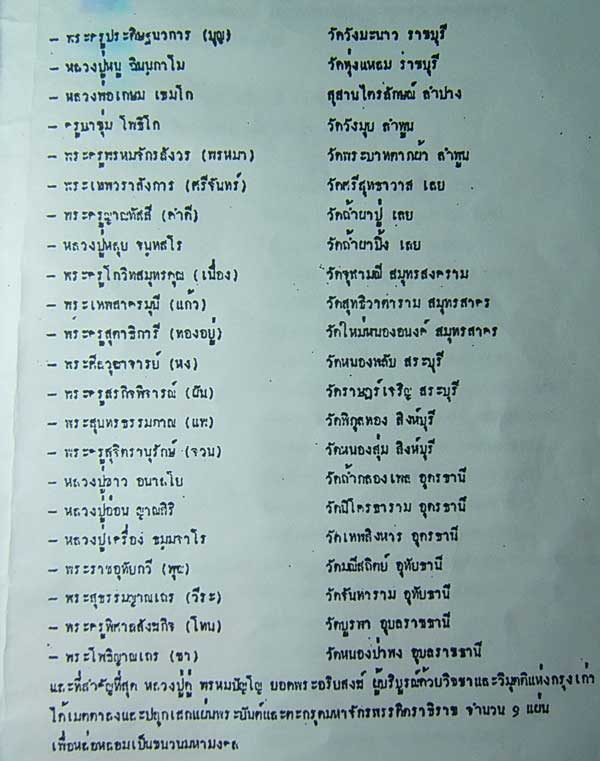 - พระครูประดิษฐนวการ (บุญ) วัดวังมะนาว ราชบุรี
- หลวงปู่หนู ฉินนกาโม วัดทุ่งแหลม ราชบุรี
- หลวงพ่อเกษม เขมโก สุสานไตรลักษณ์ ลำปาง
- ครูบาชุ่ม โพธิโก วัดวังมุย ลำพูน
- พระครูพรหมจักรสังวร (พรหมา) วัดพระบาทตากผ้า ลำพูน
- พระเทพวราลังการ (ศรีจันทร์) วัดศรีสุทธาวาส เลย
- พระครูญาณทัสสี (คำดี) วัดถ้ำผาปู่ เลย
- หลวงปู่หลุย จนฺทสโร วัดถ้ำผาบิ้ง เลย
- พระครูโกวิทสมุทรคุณ (เนื่อง) วัดจุฬามณี สมุทรสงคราม
- พระเทพสาครมุนี (แก้ว) วัดสุทธิวาตาราม สมุทรสาคร
- พระครูสุตาธิการี (ทองอยู่) วัดใหม่หนองพะองค์ สมุทรสาคร
- พระศีลวุฒาจารย์ (หง) วัดหนองพลับ สระบุรี
- พระครูสรกิจพิจารณ์ (ผัน) วัดราษฎร์เจริญ สระบุรี
- พระสุนทรธรรมภาณ (แพ) วัดพิกุลทอง สิงห์บุรี
- พระครูสุจิตรานุรักษ์ (จวน) วัดหนองสุ่ม สิงห์บุรี
- หลวงปู่ขาว อนาลโย วัดถ้ำกลองเพล อุดรธานี
- หลวงปู่อ่อน ญาณสิริ วัดนิโครธาราม อุดรธานี
- หลวงปู่เครื่อง ธมฺมจาโร วัดเทพสิงหาร อุดรธานี
- พระราชอุทัยกวี (พุฒ) วัดมณีสถิตย์ อุทัยธานี
- พระสุธรรมญาณเถร (วีระ) วัดจันทาราม อุทัยธานี
- พระครูพิศาลสังฆกิจ (โทน) วัดบูรพา อุบลราชธานี
- พระโพธิญาณเถร (ชา) วัดหนองป่าพง อุบลราชธานี
และที่สำคัญที่สุด หลวงปู่ดู่ พรหมปัญโญ ยอดพระอริยสงฆ์ ผู้บริบูรณ์ด้วยวิชชาและวิมุตติแห่งกรุงเก่า
ได้เมตตาลงและปลุกเสกแผ่นพระยันต์และตะกรุดมหาจักรพรรดิตราธิราช จำนวน ๑ แผ่น
เพื่อหล่อหลอมเป็นชนวนมหามงคล